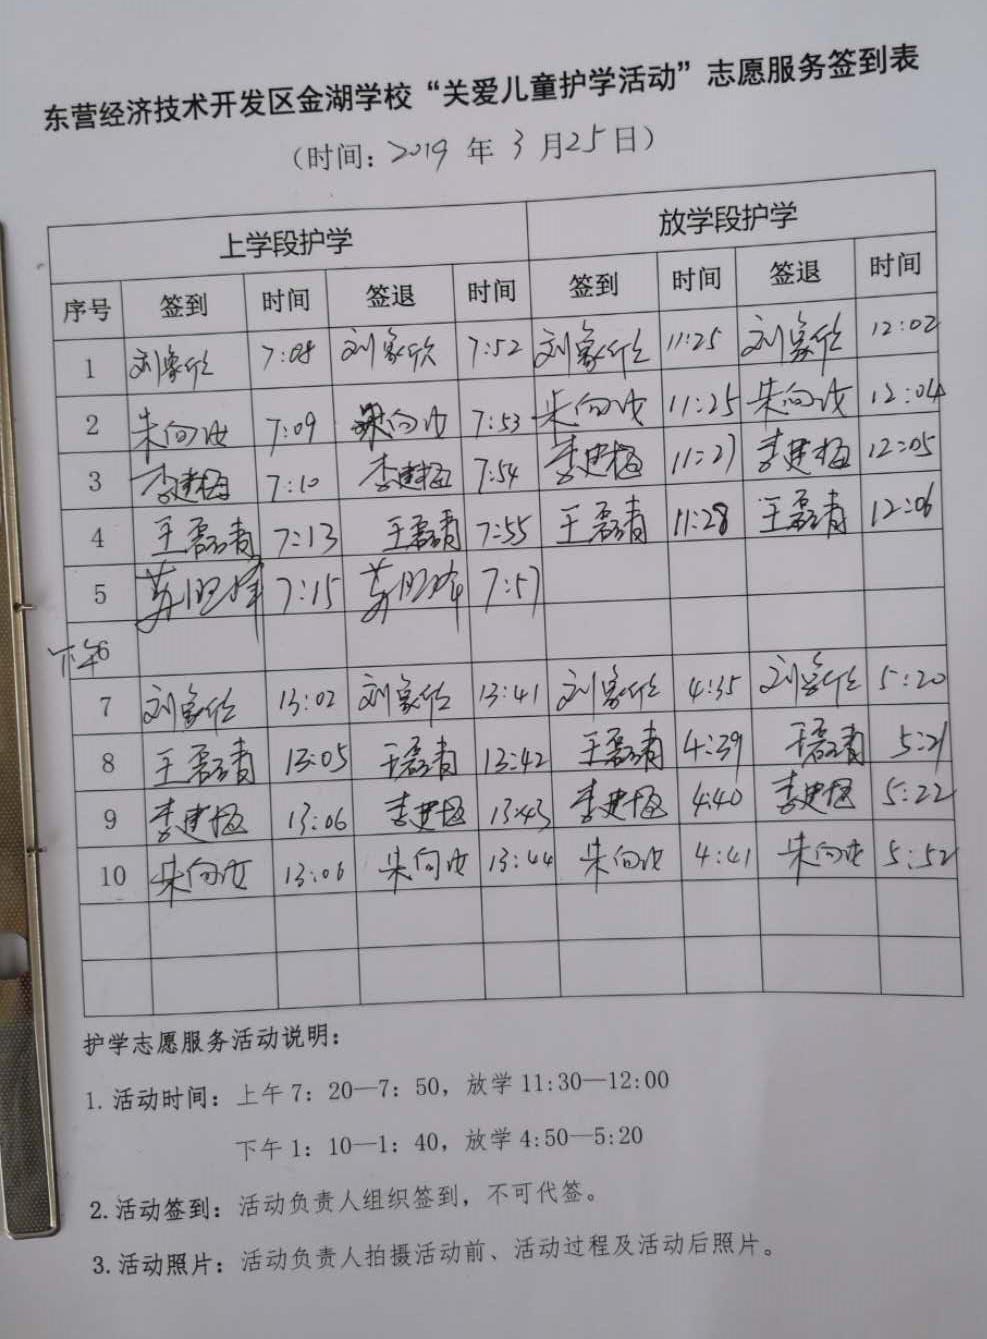 东营经济技术开发区金湖学校“关爱儿童护学活动”志愿服务签到表
（时间：2019 年 3 月25日）
上学段护学 放学段护学
序号 签到 时间 签退 时间 签到 时间 签退 时间
1 刘家欣 7:08 刘家欣 7:52 刘家欣 11:25 刘家欣 12:02
2 朱向汝 7:09 朱向汝 7:53 朱向汝 11:25 朱向汝 12:04
3 李建梅 7:10 李建梅 7:54 李建梅 11:27 李建梅 12:05
4 王磊青 7:13 王磊青 7:55 王磊青 11:28 王磊青 12:06
5 7:15 7:57
下午6
7 刘家欣 13:02 刘家欣 13:41 刘家欣 4:35 刘家欣 5:20
8 王磊青 13:05 王磊青 13:42 王磊青 4:39 王磊青 5:21
9 李建梅 13:06 李建梅 13:43 李建梅 4:40 李建梅 5:22
10 朱向汝 13:06 朱向汝 13:44 朱向汝 4:41 朱向汝 5:52
护学志愿服务活动说明：
1. 活动时间：上午 7：20—7：50，放学 11:30—12:00
下午 1：10—1：40，放学 4:50—5:20
2. 活动签到：活动负责人组织签到，不可代签。
3. 活动照片：活动负责人拍摄活动前、活动过程及活动后照片。